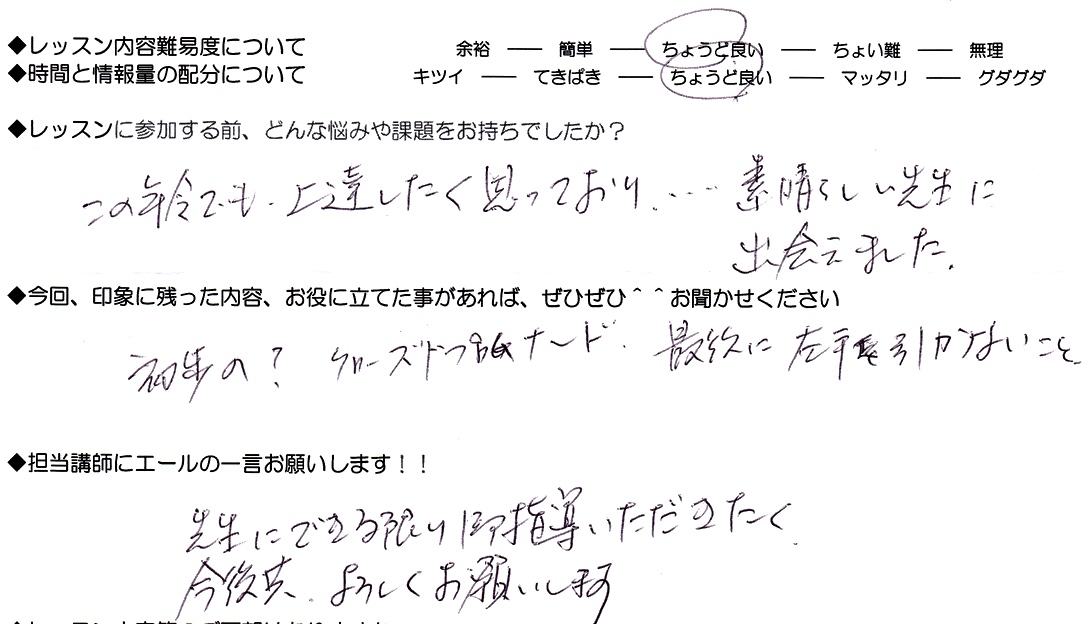 ◆レッスン内容難易度について 余裕 ― 簡単 ― ちょうど良い ― ちょい難 ― 無理
◆時間と情報量の配分について キツイ ― てきぱき ― ちょうど良い ― マッタリ ― グダグダ
◆レッスンに参加する前、どんな悩みや課題をお持ちでしたか？
この年令でも、上達したく思っており、…… 素晴らしい先生に
出会えました。
◆今回、印象に残った内容、お役に立てた事があれば、ぜひぜひ＾＾お聞かせください
初歩の？ クローズド 最後に 左手を引かないこと
◆担当講師にエールの一言お願いします！！
先生にできる限り御指導いただきたく、
今後共、よろしくお願いします